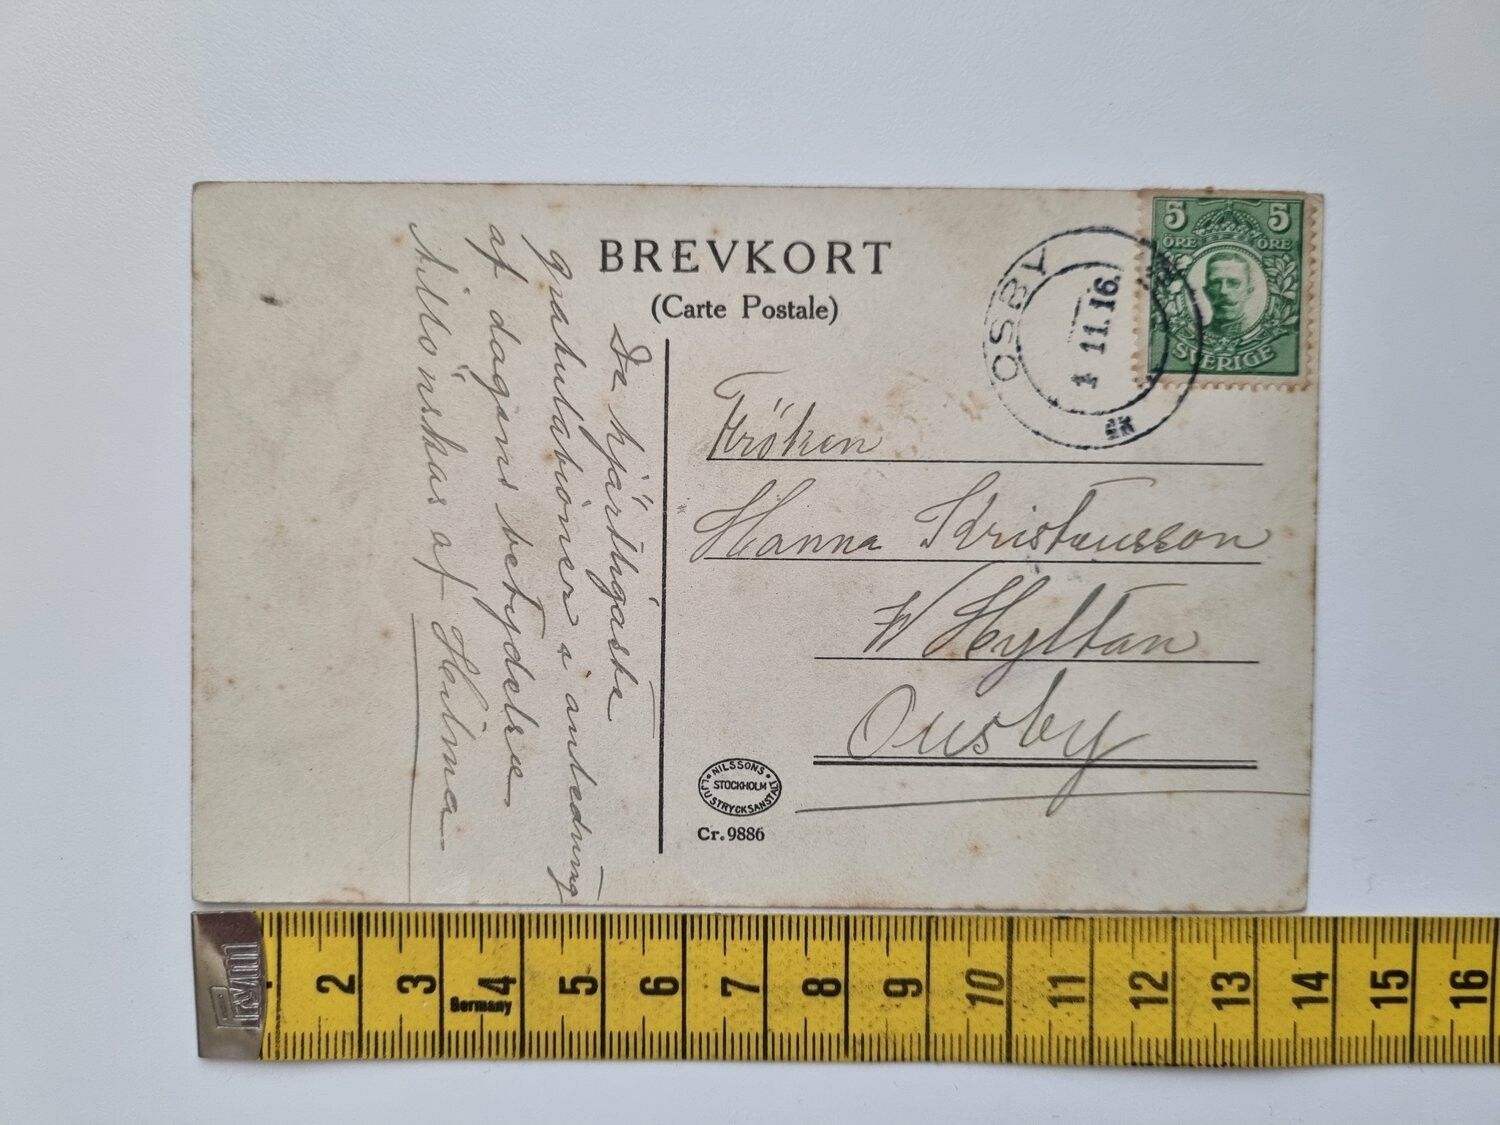 BREVKORT
(Carte Postale)
De hjärtligaste
gratulationer i anledning
af dagens betydelse
tillönskas af Hilma
Fröken
Hanna Kristensson
W Hyltan
Ousby
5 5
ÖRE ÖRE
SVERIGE
OSBY
1 11.16.
NILSSONS
STOCKHOLM
LJUSTRYCKSANSTALT
Cr. 9886
2 3 4 5 6 7 8 9 10 11 12 13 14 15 16
Germany